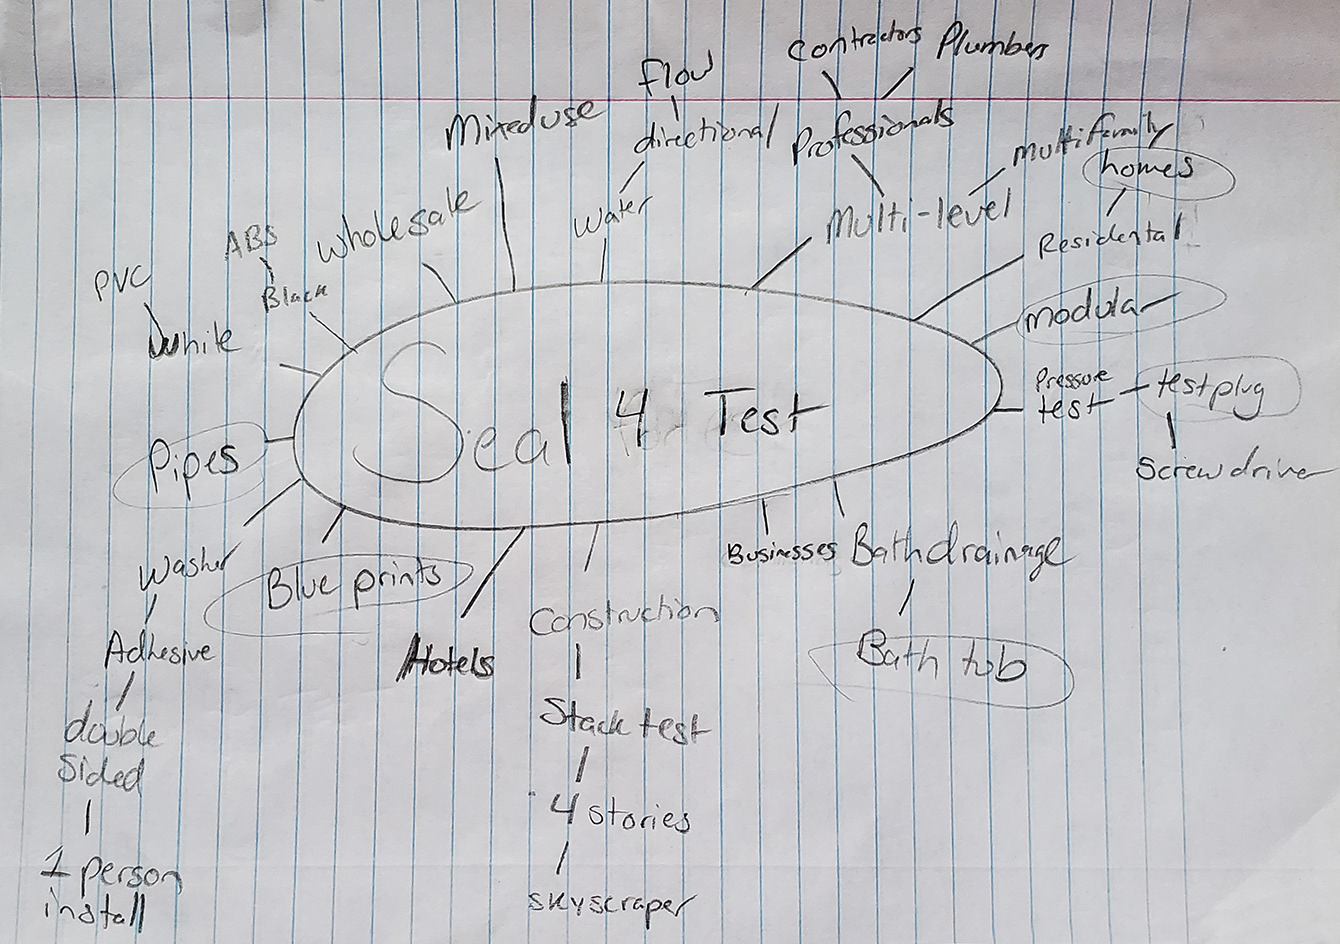 Contractors Plumbers
flow
Mixed use
directional
Professionals
Multi family
homes
Water
Multi-level
Wholesale
ABS
Residental
PVC
Black
modular
White
Pressure
test
test plug
Seal 4 Test
Pipes
Screw driver
Businesses
Bath drainage
Washer
Blue prints
Construction
Adhesive
Hotels
Bath tub
double
Sided
Stack test
4 stories
1 person
install
skyscraper